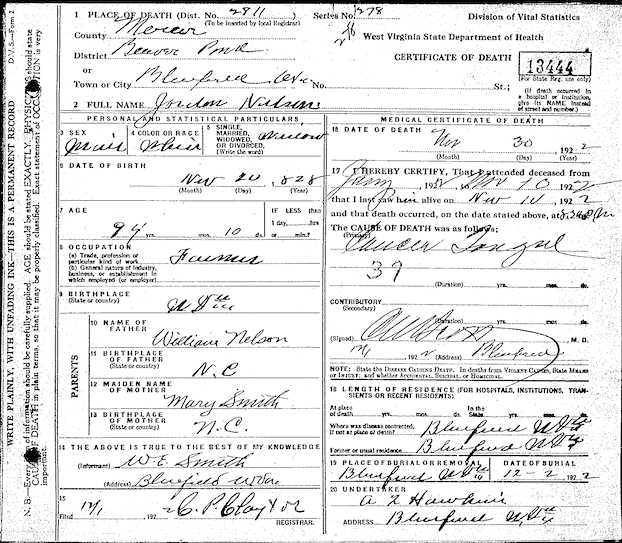 1 PLACE OF DEATH (Dist. No. 2811 Series No. 278
(To be inserted by local Registrar)
Division of Vital Statistics
County Mercer
West Virginia State Department of Health
District Beaver Pond
CERTIFICATE OF DEATH
13444
(For State Reg. use only)
or
Town or City Bluefield, W.Va. No. St.;
(If death occurred in a hospital or institution, give its NAME instead of street and number.)
2 FULL NAME Jordon Nelson
PERSONAL AND STATISTICAL PARTICULARS
3 SEX Male
4 COLOR OR RACE White
5 SINGLE, MARRIED, WIDOWED, OR DIVORCED. (Write the word) Widow
6 DATE OF BIRTH
Nov 20, 1828
(Month) (Day) (Year)
7 AGE
94 yrs. 10 ds.
IF LESS than 1 day, hrs or min.?
8 OCCUPATION
(a) Trade, profession or particular kind of work. Farmer
(b) General nature of industry, business, or establishment in which employed (or employer)
9 BIRTHPLACE
(State or country) W Va
PARENTS
10 NAME OF FATHER William Nelson
11 BIRTHPLACE OF FATHER N.C.
(State or country)
12 MAIDEN NAME OF MOTHER Mary Smith
13 BIRTHPLACE OF MOTHER N.C.
(State or country)
14 THE ABOVE IS TRUE TO THE BEST OF MY KNOWLEDGE
(Informant) W.E. Smith
(Address) Bluefield W Va
15
Filed 12/1, 192 2 C. P. Clayton
REGISTRAR.
MEDICAL CERTIFICATE OF DEATH
16 DATE OF DEATH
Nov 30, 1922
(Month) (Day) (Year)
17 I HEREBY CERTIFY, That I attended deceased from
192 Nov 10 192 2
that I last saw him alive on Nov 10 192 2
and that death occurred, on the date stated above, at
The CAUSE OF DEATH was as follows:
(Primary) Cancer Tongue
39
(Duration) yrs. mos. ds.
CONTRIBUTORY
(Secondary)
(Duration) yrs. mos. ds.
(Signed) M. D.
12/1 192 2 (Address) Bluefield
NOTE: State the DISEASE CAUSING DEATH. In deaths from VIOLENT CAUSES, State MEANS OF INJURY; and whether ACCIDENTAL, SUICIDAL, OR HOMICIDAL.
18 LENGTH OF RESIDENCE (FOR HOSPITALS, INSTITUTIONS, TRANSIENTS OR RECENT RESIDENTS)
At place of death yrs. mos. ds. In the State yrs. mos. ds.
Where was disease contracted, If not at place of death? Bluefield W Va
Former or usual residence. Bluefield W Va
19 PLACE OF BURIAL OR REMOVAL DATE OF BURIAL
Bluefield W Va 12-2 192 2
20 UNDERTAKER
A Z Hawkins
ADDRESS Bluefield W Va
D.V.S.—Form 2.
WRITE PLAINLY, WITH UNFADING INK—THIS IS A PERMANENT RECORD
N. B. Every of information should be carefully supplied. AGE should be stated EXACTLY. PHYSICIANS should state CAUSE OF DEATH in plain terms, so that it may be properly classified. Exact statement of OCCUPATION is very important.